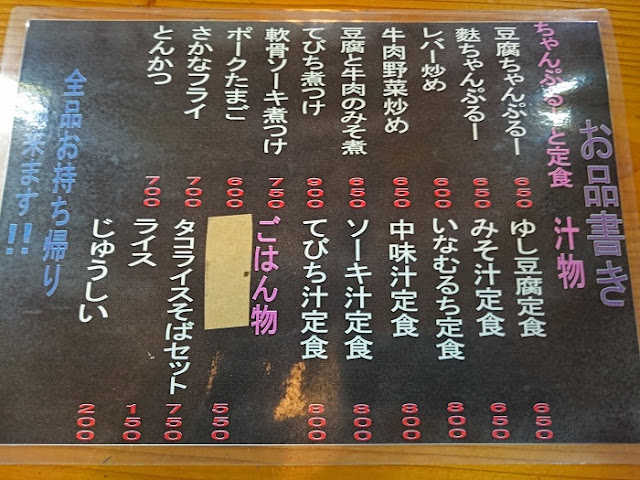 お品書き
ちゃんぷるーと定食
豆腐ちゃんぷるー 650
麩ちゃんぷるー 650
レバー炒め 600
牛肉野菜炒め 650
豆腐と牛肉のみそ煮 650
てびち煮つけ 900
軟骨ソーキ煮つけ 750
ポークたまご 600
さかなフライ 700
とんかつ 700
汁物
ゆし豆腐定食 650
みそ汁定食 650
いなむるち定食 800
中味汁定食 800
ソーキ汁定食 800
てびち汁定食 800
ごはん物
550
タコライスそばセット 750
ライス 150
じゅうしい 200
全品お持ち帰り
来ます!!